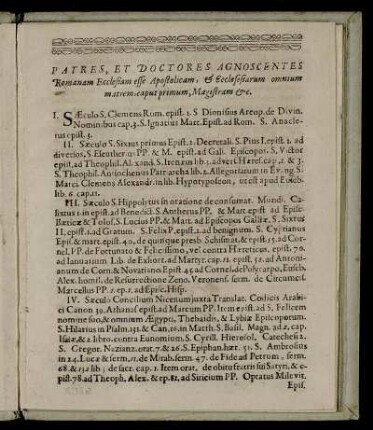 PATRES, ET DOCTORES AGNOSCENTES
Romanam Ecclesiam esse Apostolicam, & Ecclesiarum omnium
matrem, caput primum, Magistram &c.
I. SÆculo S. Clemens Rom. epist. 1. S Dionisius Areop. de Divin.
Nominibus cap. 3. S. Ignatius Mart. Epist. ad Rom. S. Anacle-
tus epist. 3.
II. Sæculo S. Sixtus primus Epist. 2. Decretali. S. Pius I. epist. 1. ad
diversos, S. Eleutherius PP. & M. epist. ad Gall. Episcopos. S. Victor
epist. ad Theophil. Alexand. S. Irenæus lib. 3. advers. Hæres. cap. 2. & 3.
S. Theophil. Antiochenus Patriarcha lib. 1. Allegoriarum in Evang. S.
Marci. Clemens Alexandr. in lib. Hypotyposeon, ut est apud Euseb.
lib. 6. cap. 11.
III. Sæculo S. Hippolytus in oratione de consumat. Mundi. Ca-
lixtus 1. in epist. ad Benedict. S. Antherus PP. & Mart. epist ad Episc.
Bæticæ & Tolof. S. Lucius PP. & Mart. ad Episcopos Galliæ, S. Sixtus
II. epist. 1. ad Gratum. S. Felix P. epist. 2. ad benignum. S. Cyprianus
Epis. & mart. epist. 40. de quinque presb. Schismat. & epist. 55. ad Cor-
nel. PP. de Fortunato & Felicissimo, vel contra Hæreticos. epist. 70.
ad Ianuarium Lib. de Exhort. ad Martyr. cap. 11. epist. 52. ad Antoni-
anum de Corn. & Novatiano. Epist 45. ad Cornel. de Polycarpo, Euseb.
Alex. homil. de Resurrectione Zeno, Veronens. serm. de Circumcis.
Marcellus PP. 1. ep. 2. ad Episc. Hisp.
IV. Sæculo Concilium Nicenum juxta Translat. Codicis Arabi-
ci Canon 39. Athanas. epist. ad Marcum PP. Item epist. ad S. Felicem
nomine suo, & omnium Ægypti, Thebaidis, & Lybiæ Episcoporum.
S. Hilarius in Psalm. 131. & Can. 16. in Matth. S. Basil. Magn. ad 2. cap.
Isaiæ, & 2 libro. contra Eunomium. S. Cyrill. Hierosol. Catechesi
S. Gregor. Nazianz. orat. 7. & 26. S. Epiphan. hær. 51. S. Ambrosius
in 24. Lucæ & serm. 11. de Mirab. serm. 47. de Fide ad Petrum, serm.
68. & 152 lib; de sacr. cap. 1. Item orat. de obitu fratris sui Satyri, & e-
pist. 78. ad Theoph. Alex. & ep. 81. ad Siricium PP. Optatus Milevit.
Epis.